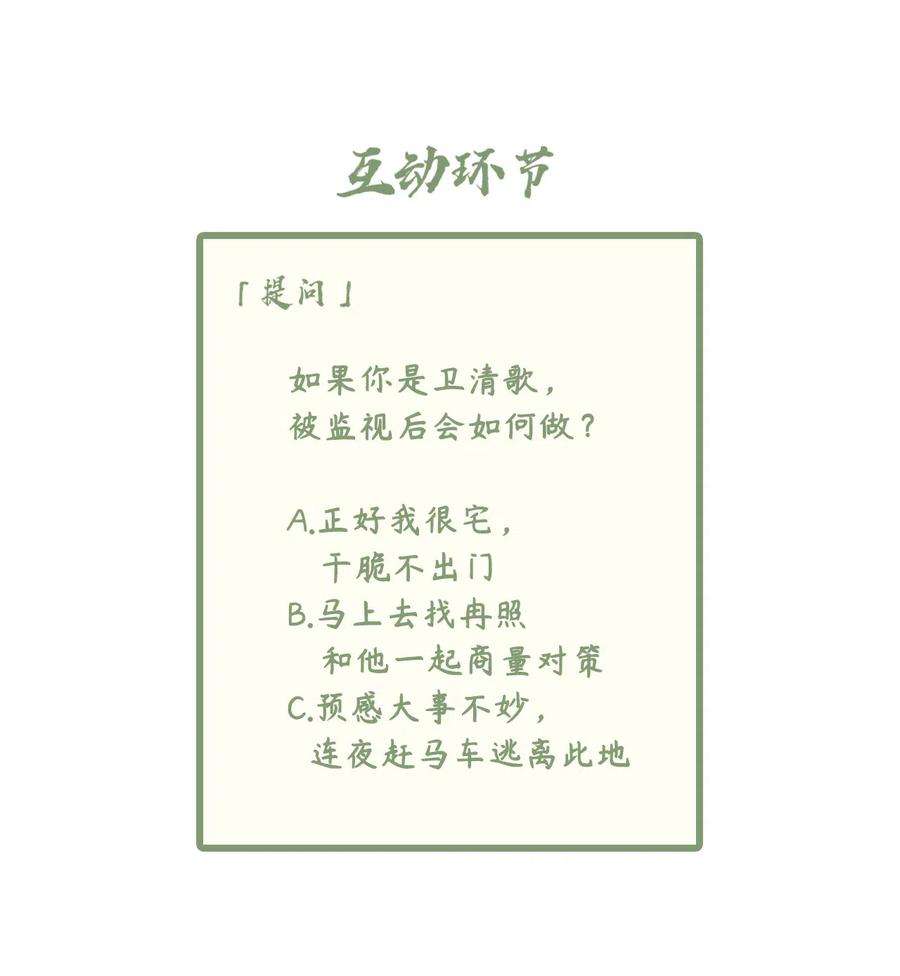 互动环节
「提问」
如果你是卫清歌，
被监视后会如何做？
A.正好我很宅，
干脆不出门
B.马上去找冉照
和他一起商量对策
C.预感大事不妙，
连夜赶马车逃离此地